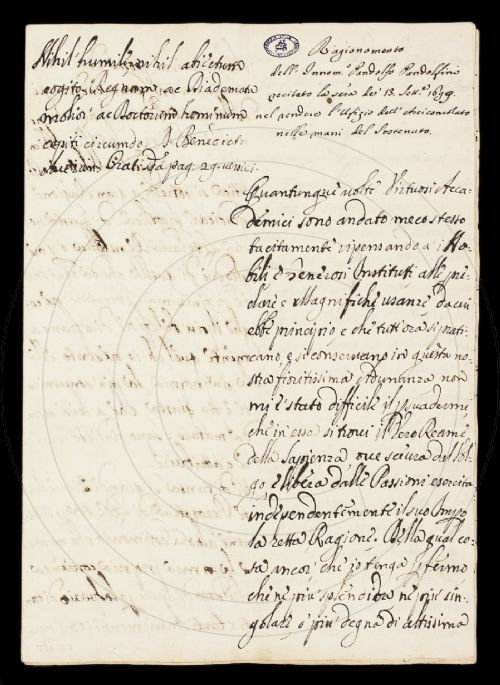 Nihil humile nihil abiectum
cogito Regnum ac Diademata
molior ac Doctorum hominum
capiti circumdo
pag.
Ragionamento
dell' Innom.º Pandolfo Pandolfini
recitato la sera de' 13. Set.e 1699.
nel rendere l'Ufizio dell' Arciconsolato
nelle mani del Sostenuto.
Quantunque volte Virtuosi Acca-
demici sono andato meco stesso
tacitamente ripensando a i No-
bili e Generosi Instituti alle pre-
clare e Magnifiche usanze da cui
ebbe principio, e che tutt'ora si prati-
cano, e si conservano in questa no-
stra fioritissima Adunanza non
mi è stato difficile il persuadermi
che in essa si trovi il Vero Reame
della Sapienza ove scevra dal Vol-
go e libera dalle Passioni esercita
independentemente il suo Impero
la retta Ragione. Della qual co-
sa ancor che io tenga per fermo
che nè più splendida nè più sin-
golare o più degna di altissima